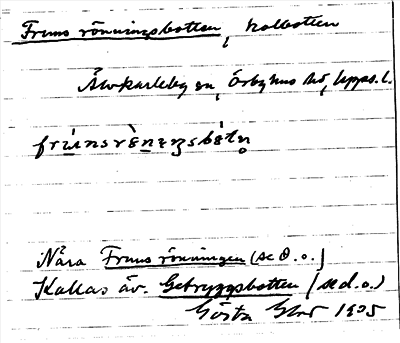 Fruns rönningsbotten, kolbotten
Älvkarleby sn, Örbyhus hd, Upps. l.
frúnsrènɩŋsbótn̥
Nära Fruns rönningen (se d. o.)
Kallas äv. Getryggsbotten (se d. o.)
Gösta 1935